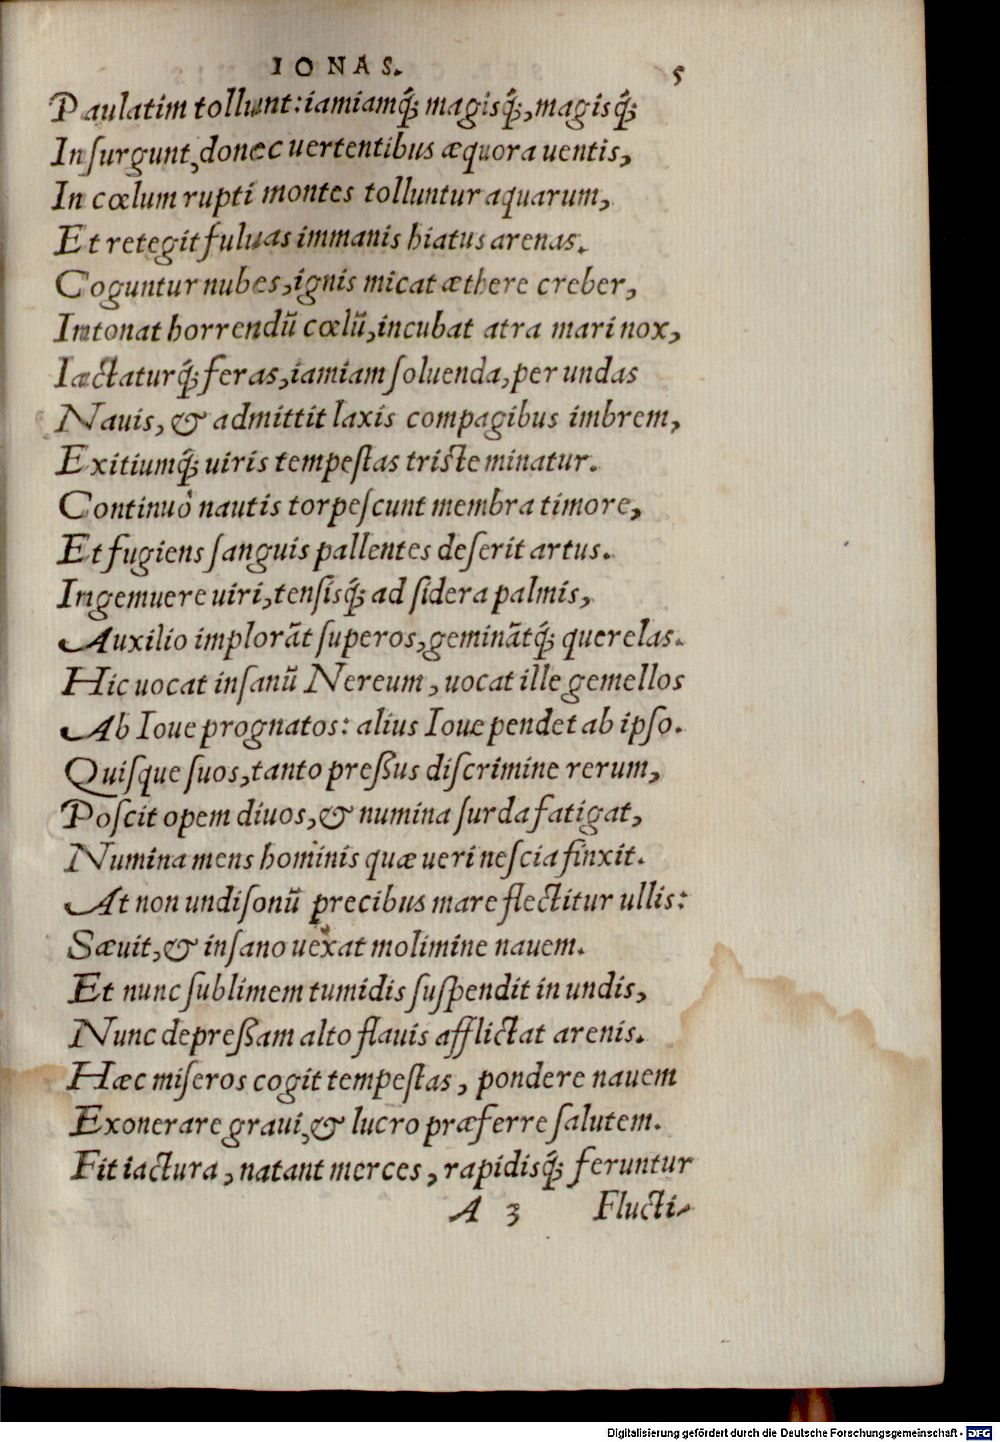 IONAS. 5
Paulatim tollunt: iamiamq́; magisq́;, magisq́;
Inſurgunt, donec uertentibus æquora uentis,
In cœlum rupti montes tolluntur aquarum,
Et retegit fuluas immanis hiatus arenas.
Coguntur nubes, ignis micat æthere creber,
Intonat horrendū cœlū, incubat atra mari nox,
Iactaturq́; feras, iamiam ſoluenda, per undas
Nauis, & admittit laxis compagibus imbrem,
Exitiumq́; uiris tempeſtas triſte minatur.
Continuò nautis torpeſcunt membra timore,
Et fugiens ſanguis pallentes deſerit artus.
Ingemuere uiri, tenſisq́; ad ſidera palmis,
Auxilio implorāt ſuperos, geminātq́; querelas.
Hic uocat inſanū Nereum, uocat ille gemellos
Ab Ioue prognatos: alius Ioue pendet ab ipſo.
Quiſque ſuos, tanto preſſus diſcrimine rerum,
Poſcit opem diuos, & numina ſurda fatigat,
Numina mens hominis quæ ueri neſcia finxit.
At non undiſonū precibus mare flectitur ullis:
Sæuit, & inſano uexat molimine nauem.
Et nunc ſublimem tumidis ſuſpendit in undis,
Nunc depreſſam alto flauis afflictat arenis.
Hæc miſeros cogit tempeſtas, pondere nauem
Exonerare graui, & lucro præferre ſalutem.
Fit iactura, natant merces, rapidisq́; feruntur
A 3 Flucti-
Digitalisierung gefördert durch die Deutsche Forschungsgemeinschaft - DFG